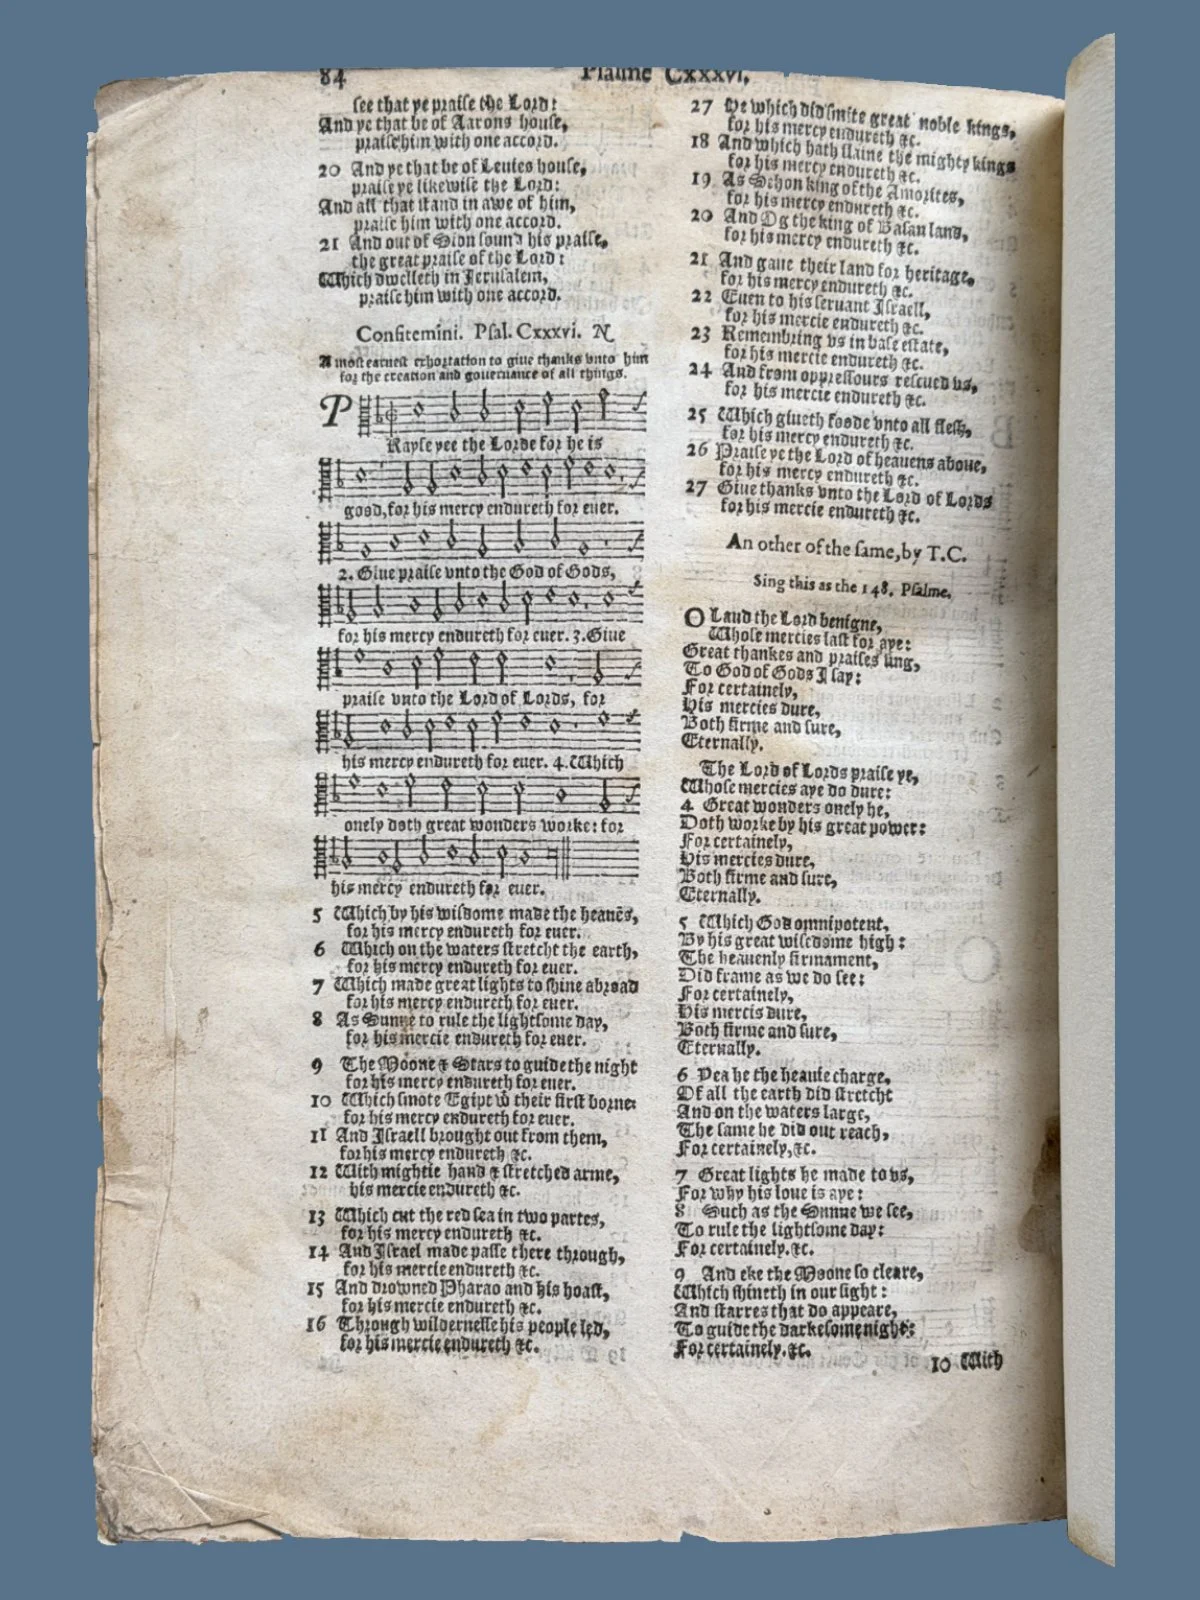 84
Psalme Cxxxvi.
see that ye praise the Lord:
And ye that be of Aarons house,
praise him with one accord.
20 And ye that be of Leuies house,
praise ye likewise the Lord:
And all that stand in awe of him,
praise him with one accord.
21 And out of Sion sound his praise,
the great praise of the Lord:
Which dwelleth in Jerusalem,
praise him with one accord.
Confitemini. Psal. Cxxxvi. N
A most earnest exhortation to giue thanks vnto him
for the creation and gouernance of all things.
P
Rayse yee the Lorde for he is
good, for his mercy endureth for euer.
2. Giue praise vnto the God of Gods,
for his mercy endureth for euer. 3. Giue
praise vnto the Lord of Lords, for
his mercy endureth for euer. 4. Which
onely doth great wonders worke: for
his mercy endureth for euer.
5 Which by his wisdome made the heauēs,
for his mercy endureth for euer.
6 Which on the waters stretcht the earth,
for his mercy endureth for euer.
7 Which made great lights to shine abroad
for his mercy endureth for euer.
8 As Sunne to rule the lightsome day,
for his mercie endureth for euer.
9 The Moone & Stars to guide the night
for his mercy endureth for euer.
10 Which smote Egipt wͭ their first borne:
for his mercy endureth for euer.
11 And Israell brought out from them,
for his mercy endureth &c.
12 With mightie hand & stretched arme,
his mercie endureth &c.
13 Which cut the red sea in two partes,
for his mercy endureth &c.
14 And Israel made passe there through,
for his mercie endureth &c.
15 And drowned Pharao and his hoast,
for his mercie endureth &c.
16 Through wildernesse his people led,
for his mercie endureth &c.
27 He which did smite great noble kings,
for his mercy endureth &c.
18 And which hath slaine the mighty kings
for his mercy endureth &c.
19 As Sehon king of the Amorites,
for his mercy endureth &c.
20 And Og the king of Basan land,
for his mercy endureth &c.
21 And gaue their land for heritage,
for his mercy endureth &c.
22 Euen to his seruant Israell,
for his mercie endureth &c.
23 Remembring vs in base estate,
for his mercie endureth &c.
24 And from oppressours rescued vs,
for his mercie endureth &c.
25 Which giueth foode vnto all flesh,
for his mercy endureth &c.
26 Praise ye the Lord of heauens aboue,
for his mercy endureth &c.
27 Giue thanks vnto the Lord of Lords
for his mercie endureth &c.
An other of the same, by T. C.
Sing this as the 148. Psalme.
O Laud the Lord benigne,
Whose mercies last for aye:
Great thankes and praises sing,
To God of Gods I say:
For certainely,
His mercies dure,
Both firme and sure,
Eternally.
The Lord of Lords praise ye,
Whose mercies aye do dure:
4 Great wonders onely he,
Doth worke by his great power:
For certainely,
His mercies dure,
Both firme and sure,
Eternally.
5 Which God omnipotent,
By his great wisedome high:
The heauenly firmament,
Did frame as we do see:
For certainely,
His mercis dure,
Both firme and sure,
Eternally.
6 Yea he the heauie charge,
Of all the earth did stretcht
And on the waters large,
The same he did out reach,
For certainely, &c.
7 Great lights he made to vs,
For why his loue is aye:
8 Such as the Sunne we see,
To rule the lightsome day:
For certainely. &c.
9 And eke the Moone so cleare,
Which shineth in our sight:
And starres that do appeare,
To guide the darkesome night:
For certainely. &c.
10 With